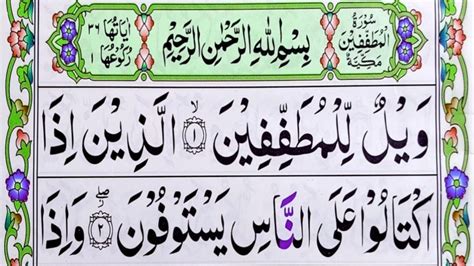 سُوْرَةُ الْمُطَفِّفِيْنَ مَكِّيَّةٌ
بِسْمِ اللّٰهِ الرَّحْمٰنِ الرَّحِيْمِ
اٰيَاتُهَا ٣٦ رُكُوْعُهَا ١
وَيْلٌ لِّلْمُطَفِّفِيْنَ ۙ‏ ١ الَّذِيْنَ اِذَا
اكْتَالُوْا عَلَى النَّاسِ يَسْتَوْفُوْنَ ۖ ٢ وَاِذَا